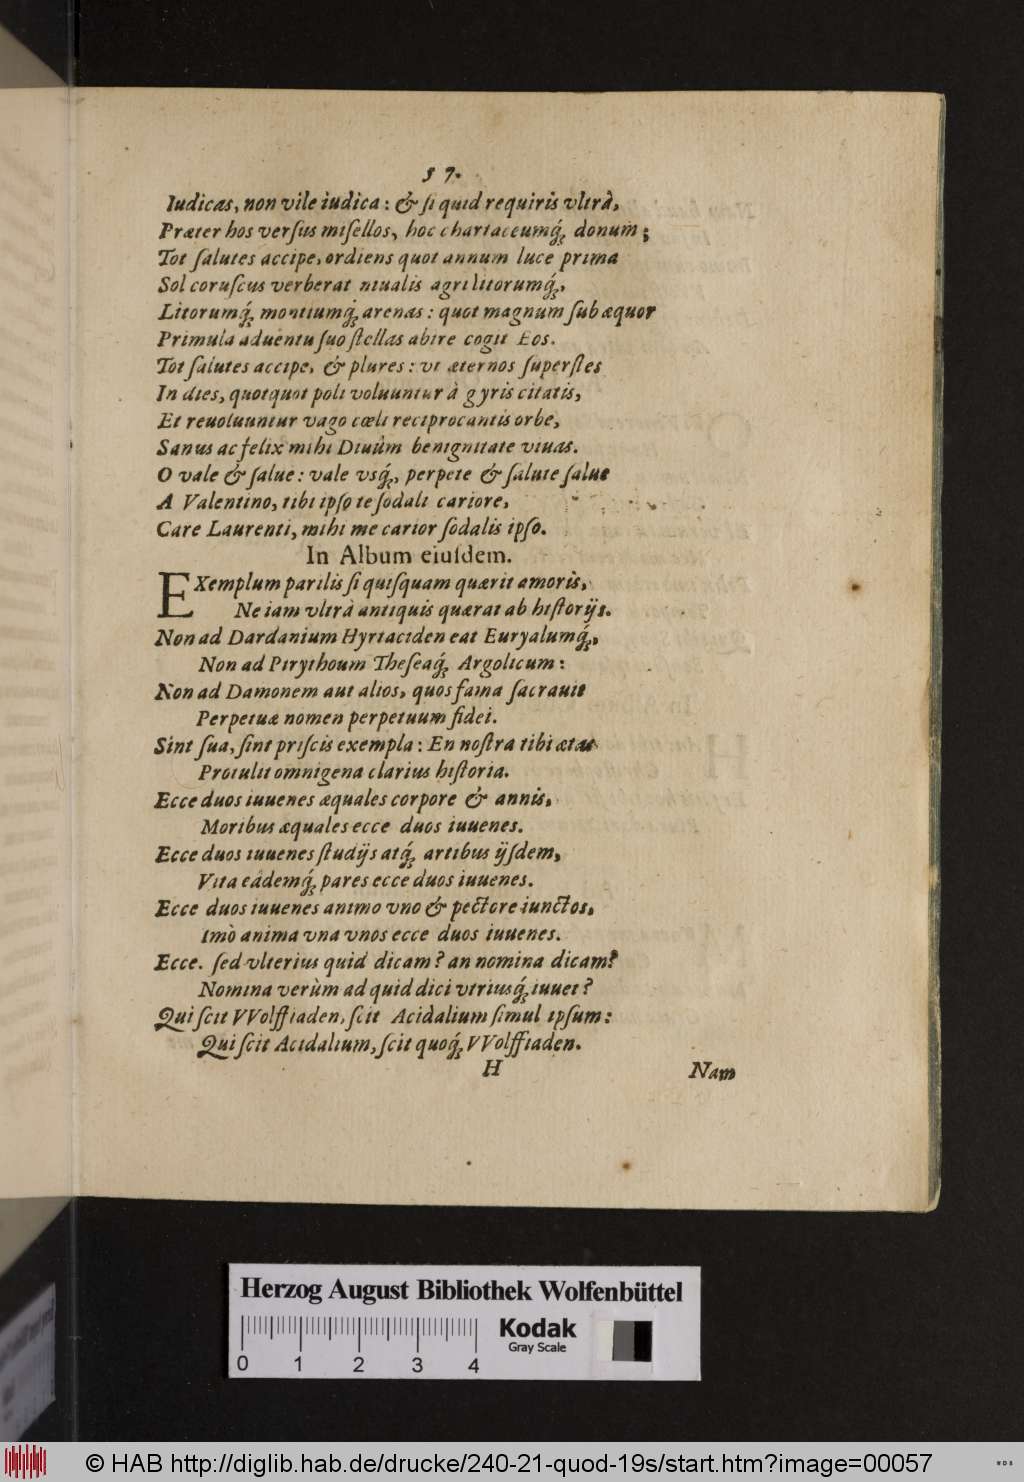 57.
Iudicas, non vile iudica: & ſi quid requiris vltrà,
Præter hos verſus miſellos, hoc chartaceumq́ꝫ donum;
Tot ſalutes accipe, ordiens quot annum luce prima
Sol coruſcus verberat niualis agri litorumq́ꝫ,
Litorumq́ꝫ montiumq́ꝫ arenas: quot magnum ſub æquor
Primula aduentu ſuo ſtellas abire cogit Eos.
Tot ſalutes accipe, & plures: vt æternos ſuperſtes
In dies, quotquot poli voluuntur à gyris citatis,
Et reuoluuntur vago cœli reciprocantis orbe,
Sanus ac felix mihi Diuûm benignitate viuas.
O vale & ſalue: vale vsq́ꝫ, perpete & ſalute ſalue
A Valentino, tibi ipſo te ſodali cariore,
Care Laurenti, mihi me carior ſodalis ipſo.
In Album eiuſdem.
EXemplum parilis ſi quiſquam quærit amoris,
Ne iam vltrà antiquis quærat ab hiſtorijs.
Non ad Dardanium Hyrtaciden eat Euryalumq́ꝫ,
Non ad Pirythoum Theſeaq́ꝫ Argolicum:
Non ad Damonem aut alios, quos fama ſacrauit
Perpetuæ nomen perpetuum fidei.
Sint ſua, ſint priſcis exempla: En noſtra tibi ætas
Protulit omnigena clarius hiſtoria.
Ecce duos iuuenes æquales corpore & annis,
Moribus æquales ecce duos iuuenes.
Ecce duos iuuenes ſtudijs atq́ꝫ artibus ijſdem,
Vita eádemq́ꝫ pares ecce duos iuuenes.
Ecce duos iuuenes animo vno & pectore iunctos,
imò anima vna vnos ecce duos iuuenes.
Ecce. ſed vlterius quid dicam? an nomina dicam?
Nomina verùm ad quid dici vtriusq́ꝫ iuuet?
Qui ſcit VVolffiaden, ſcit Acidalium ſimul ipſum:
Qui ſcit Acidalium, ſcit quoq́ꝫ VVolffiaden.
H Nam
Herzog August Bibliothek Wolfenbüttel
Kodak
Gray Scale
0 1 2 3 4
© HAB http://diglib.hab.de/drucke/240-21-quod-19s/start.htm?image=00057